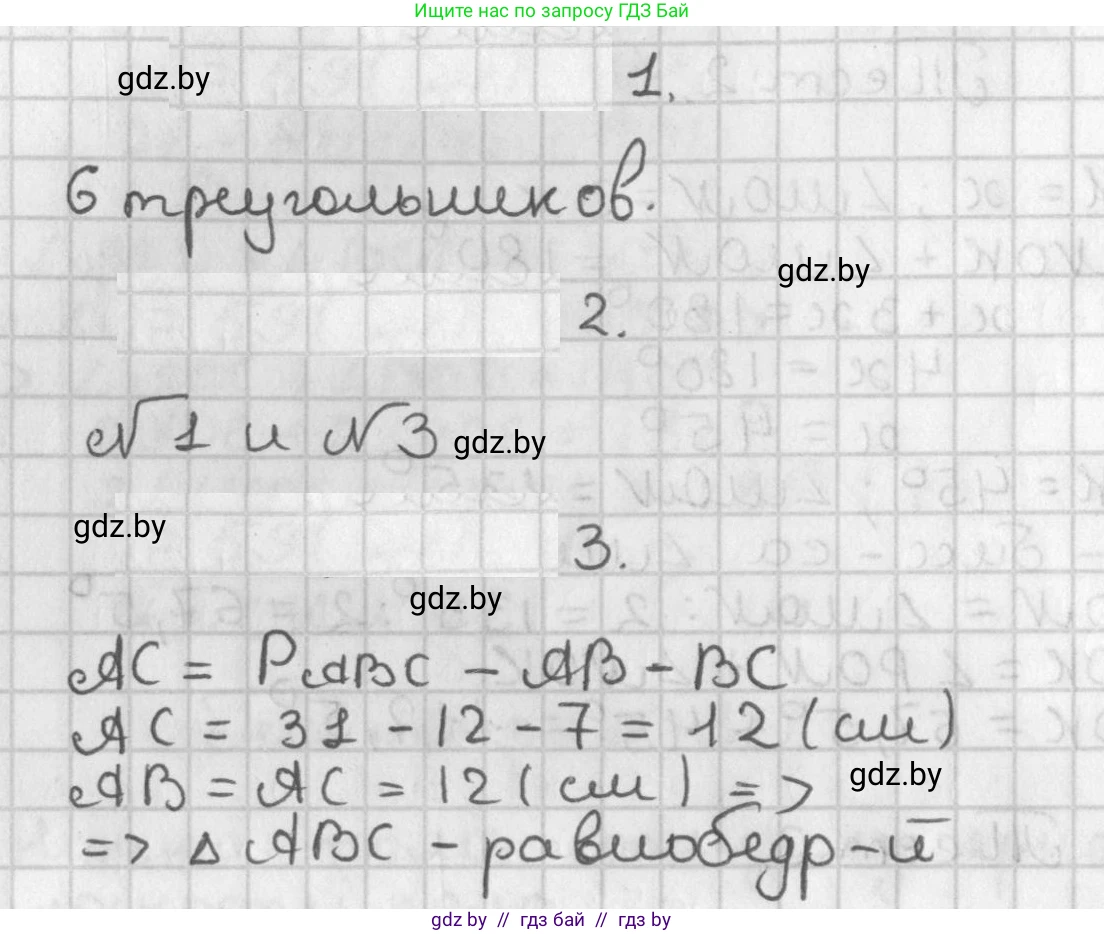 Ищите нас по запросу ГДЗ Бай
gdz.by
1.
6 треугольников.
gdz.by
2.
№1 и №3 gdz.by
gdz.by
3.
gdz.by
AC = PABC - AB - BC
AC = 31 - 12 - 7 = 12 (см)
AB = AC = 12 (см) =>
gdz.by
=> Δ ABC - равнобедр-й
gdz.by // гдз бай // гдз by